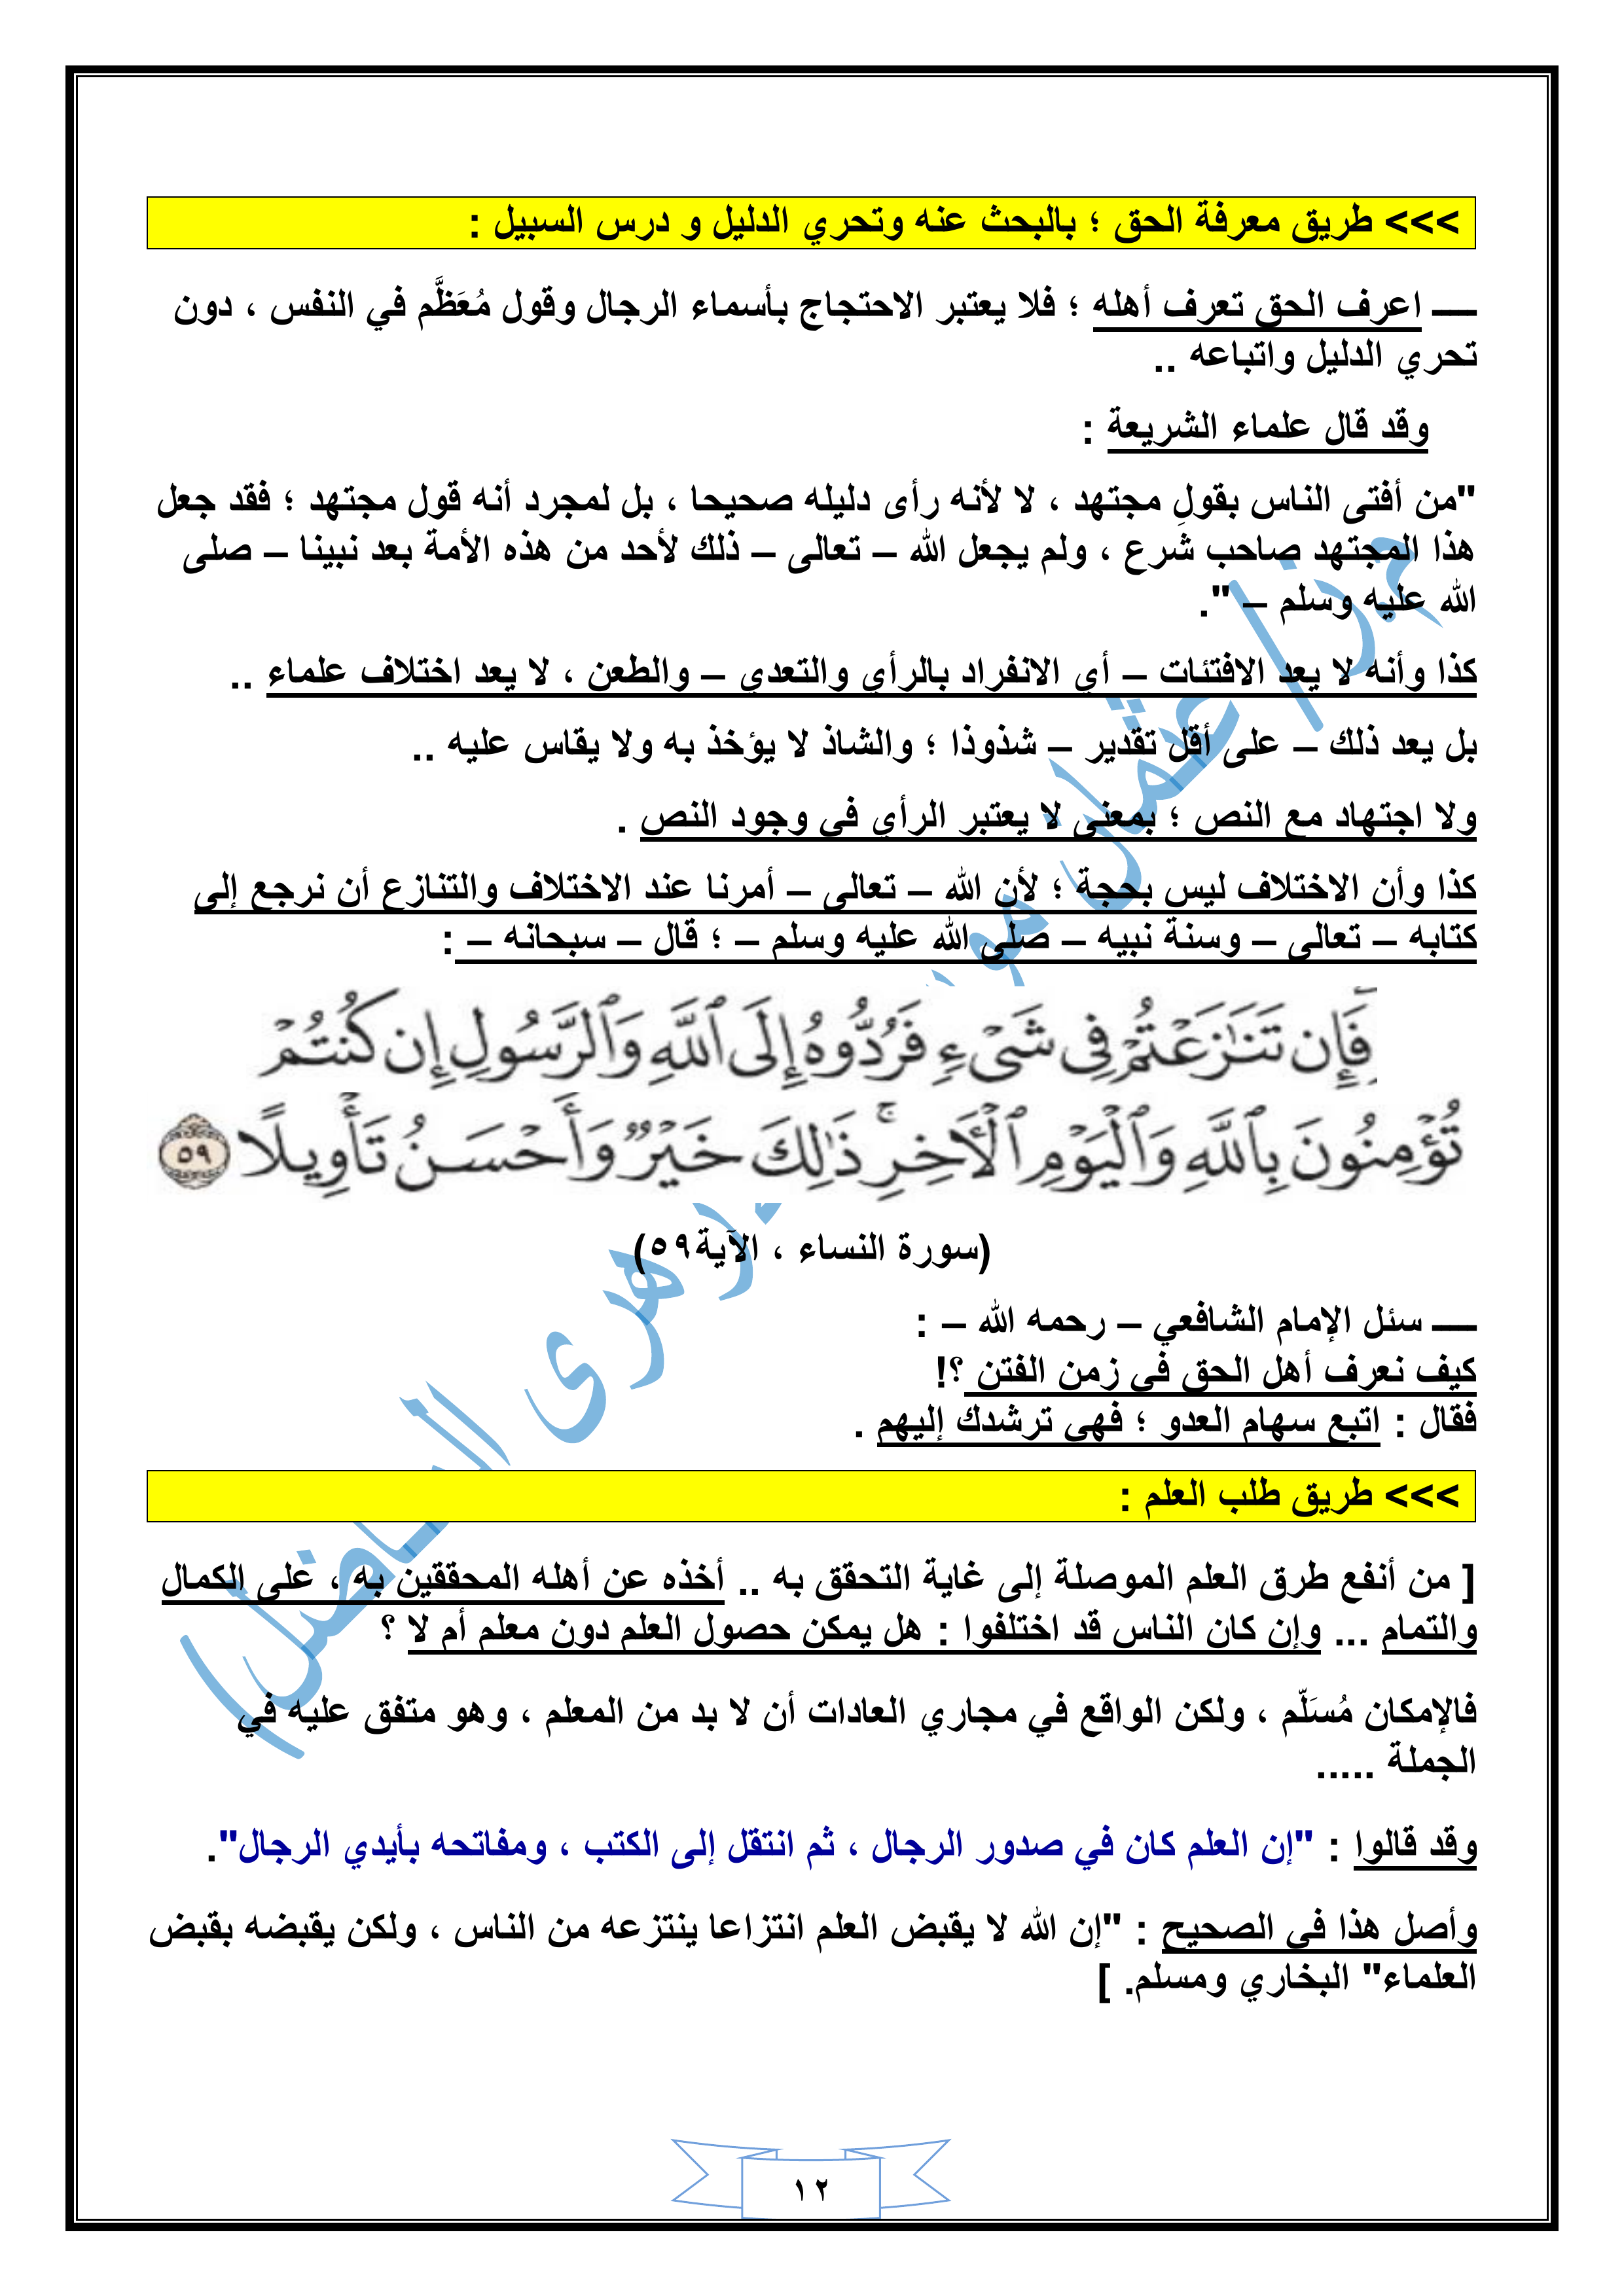 >>> طريق معرفة الحق ؛ بالبحث عنه وتحري الدليل و درس السبيل :
ــــ اعرف الحق تعرف أهله ؛ فلا يعتبر الاحتجاج بأسماء الرجال وقول مُعَظَّم في النفس ، دون
تحري الدليل واتباعه ..
وقد قال علماء الشريعة :
"من أفتى الناس بقولِ مجتهد ، لا لأنه رأى دليله صحيحا ، بل لمجرد أنه قول مجتهد ؛ فقد جعل
هذا المجتهد صاحب شرع ، ولم يجعل الله – تعالى – ذلك لأحد من هذه الأمة بعد نبينا – صلى
الله عليه وسلم – ".
كذا وأنه لا يعد الافتئات – أي الانفراد بالرأي والتعدي – والطعن ، لا يعد اختلاف علماء ..
بل يعد ذلك – على أقل تقدير – شذوذا ؛ والشاذ لا يؤخذ به ولا يقاس عليه ..
ولا اجتهاد مع النص ؛ بمعنى لا يعتبر الرأي في وجود النص .
كذا وأن الاختلاف ليس بحجة ؛ لأن الله – تعالى – أمرنا عند الاختلاف والتنازع أن نرجع إلى
كتابه – تعالى – وسنة نبيه – صلى الله عليه وسلم – ؛ قال – سبحانه – :
فَإِن تَنَـٰزَعْتُمْ فِى شَىْءٍ فَرُدُّوهُ إِلَى ٱللَّهِ وَٱلرَّسُولِ إِن كُنتُمْ
تُؤْمِنُونَ بِٱللَّهِ وَٱلْيَوْمِ ٱلْـَٔاخِرِ ۚ ذَٰلِكَ خَيْرٌ وَأَحْسَنُ تَأْوِيلًا ٥٩
(سورة النساء ، الآية٥٩)
ــــ سئل الإمام الشافعي – رحمه الله – :
كيف نعرف أهل الحق في زمن الفتن ؟!
فقال : اتبع سهام العدو ؛ فهي ترشدك إليهم .
>>> طريق طلب العلم :
[ من أنفع طرق العلم الموصلة إلى غاية التحقق به .. أخذه عن أهله المحققين به ، على الكمال
والتمام ... وإن كان الناس قد اختلفوا : هل يمكن حصول العلم دون معلم أم لا ؟
فالإمكان مُسَلّم ، ولكن الواقع في مجاري العادات أن لا بد من المعلم ، وهو متفق عليه في
الجملة .....
وقد قالوا : "إن العلم كان في صدور الرجال ، ثم انتقل إلى الكتب ، ومفاتحه بأيدي الرجال".
وأصل هذا في الصحيح : "إن الله لا يقبض العلم انتزاعا ينتزعه من الناس ، ولكن يقبضه بقبض
العلماء" البخاري ومسلم. ]
١٢